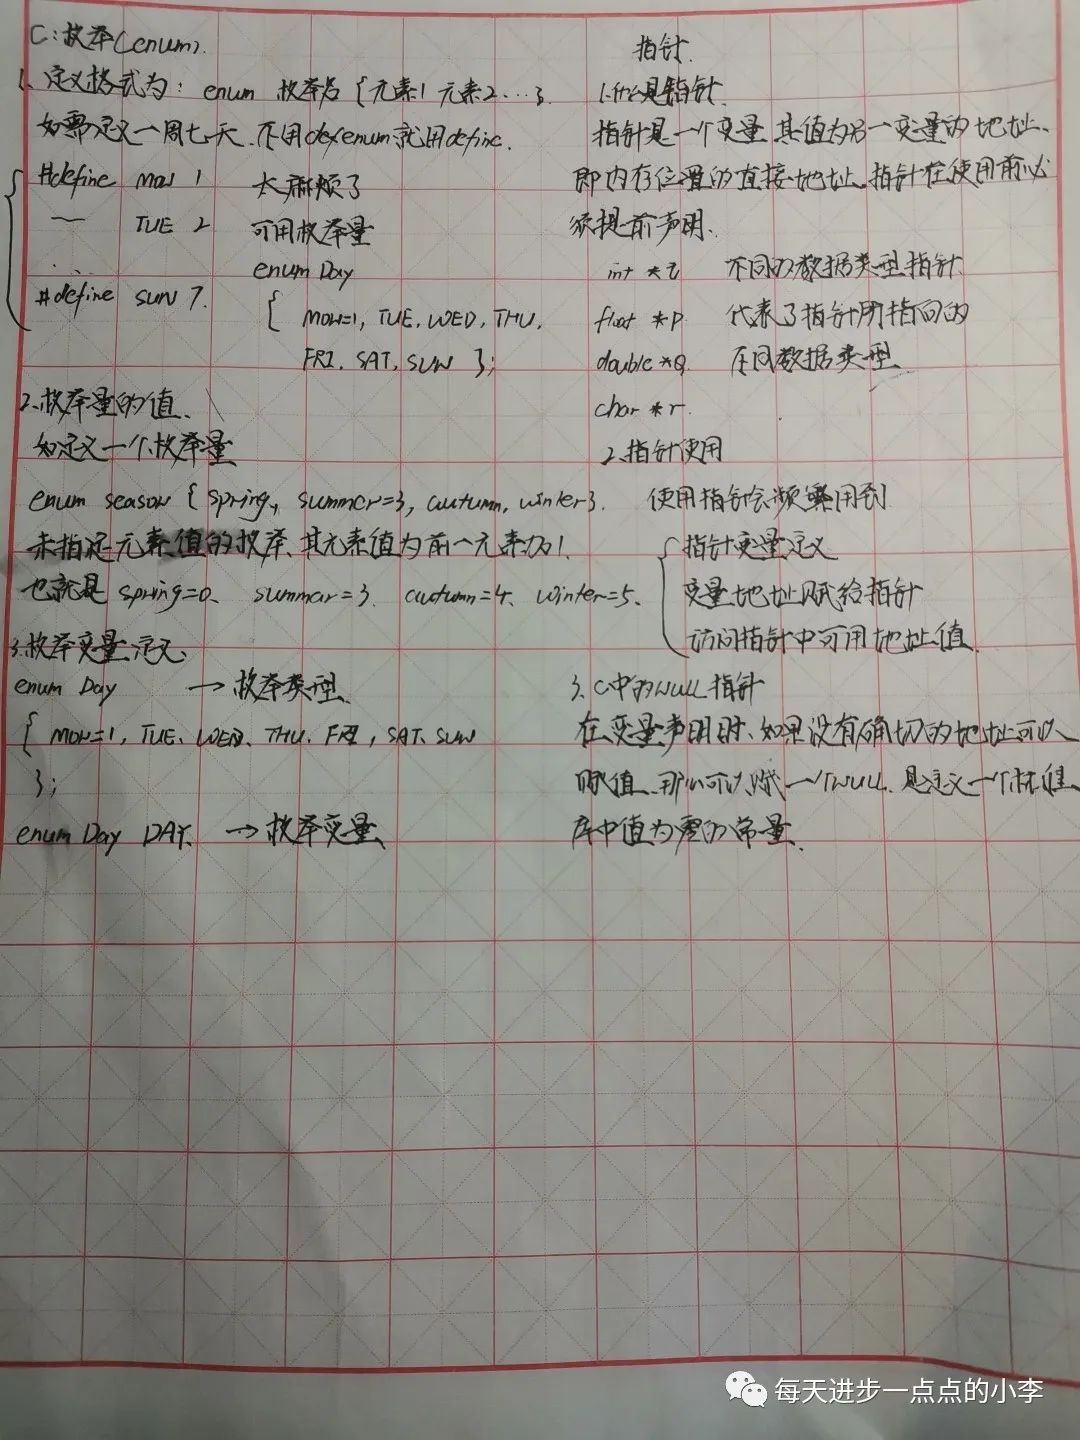 C:枚举(enum).
1. 定义格式为: enum 枚举名 {元素1 元素2...};
如需定义一周七天、不用enum就用define.
#define MON 1 太麻烦了
— TUE 2 可用枚举量
... enum Day
#define SUN 7. { MON=1, TUE, WED, THU,
FRI, SAT, SUN };
2、枚举量的值、
如定义一个枚举量
enum season { spring, summer=3, autumn, winter}.
未指定元素值的枚举、其元素值为前一元素加1.
也就是 spring=0、 summar=3. autumn=4、 winter=5、
3.枚举变量定义、
enum Day → 枚举类型
{ MON=1, TUE、WED、THU. FRI, SAT、SUN
};
enum Day DAY. → 枚举变量
指针.
1.什么是指针
指针是一个变量,其值为另一变量的地址、
即内存位置的直接地址.指针在使用前必
须提前声明、
int *i 不同的数据类型指针
float *p. 代表了指针所指向的
double *Q 不同数据类型
char *r.
2、指针使用
使用指针会频繁用到
指针变量定义
变量地址赋给指针
访问指针中可用地址值
3、C中的NULL指针
在变量声明时、如果没有确切的地址可以
赋值、那么可以赋一个NULL.是定义一个标准
库中值为零的常量、
每天进步一点点的小李